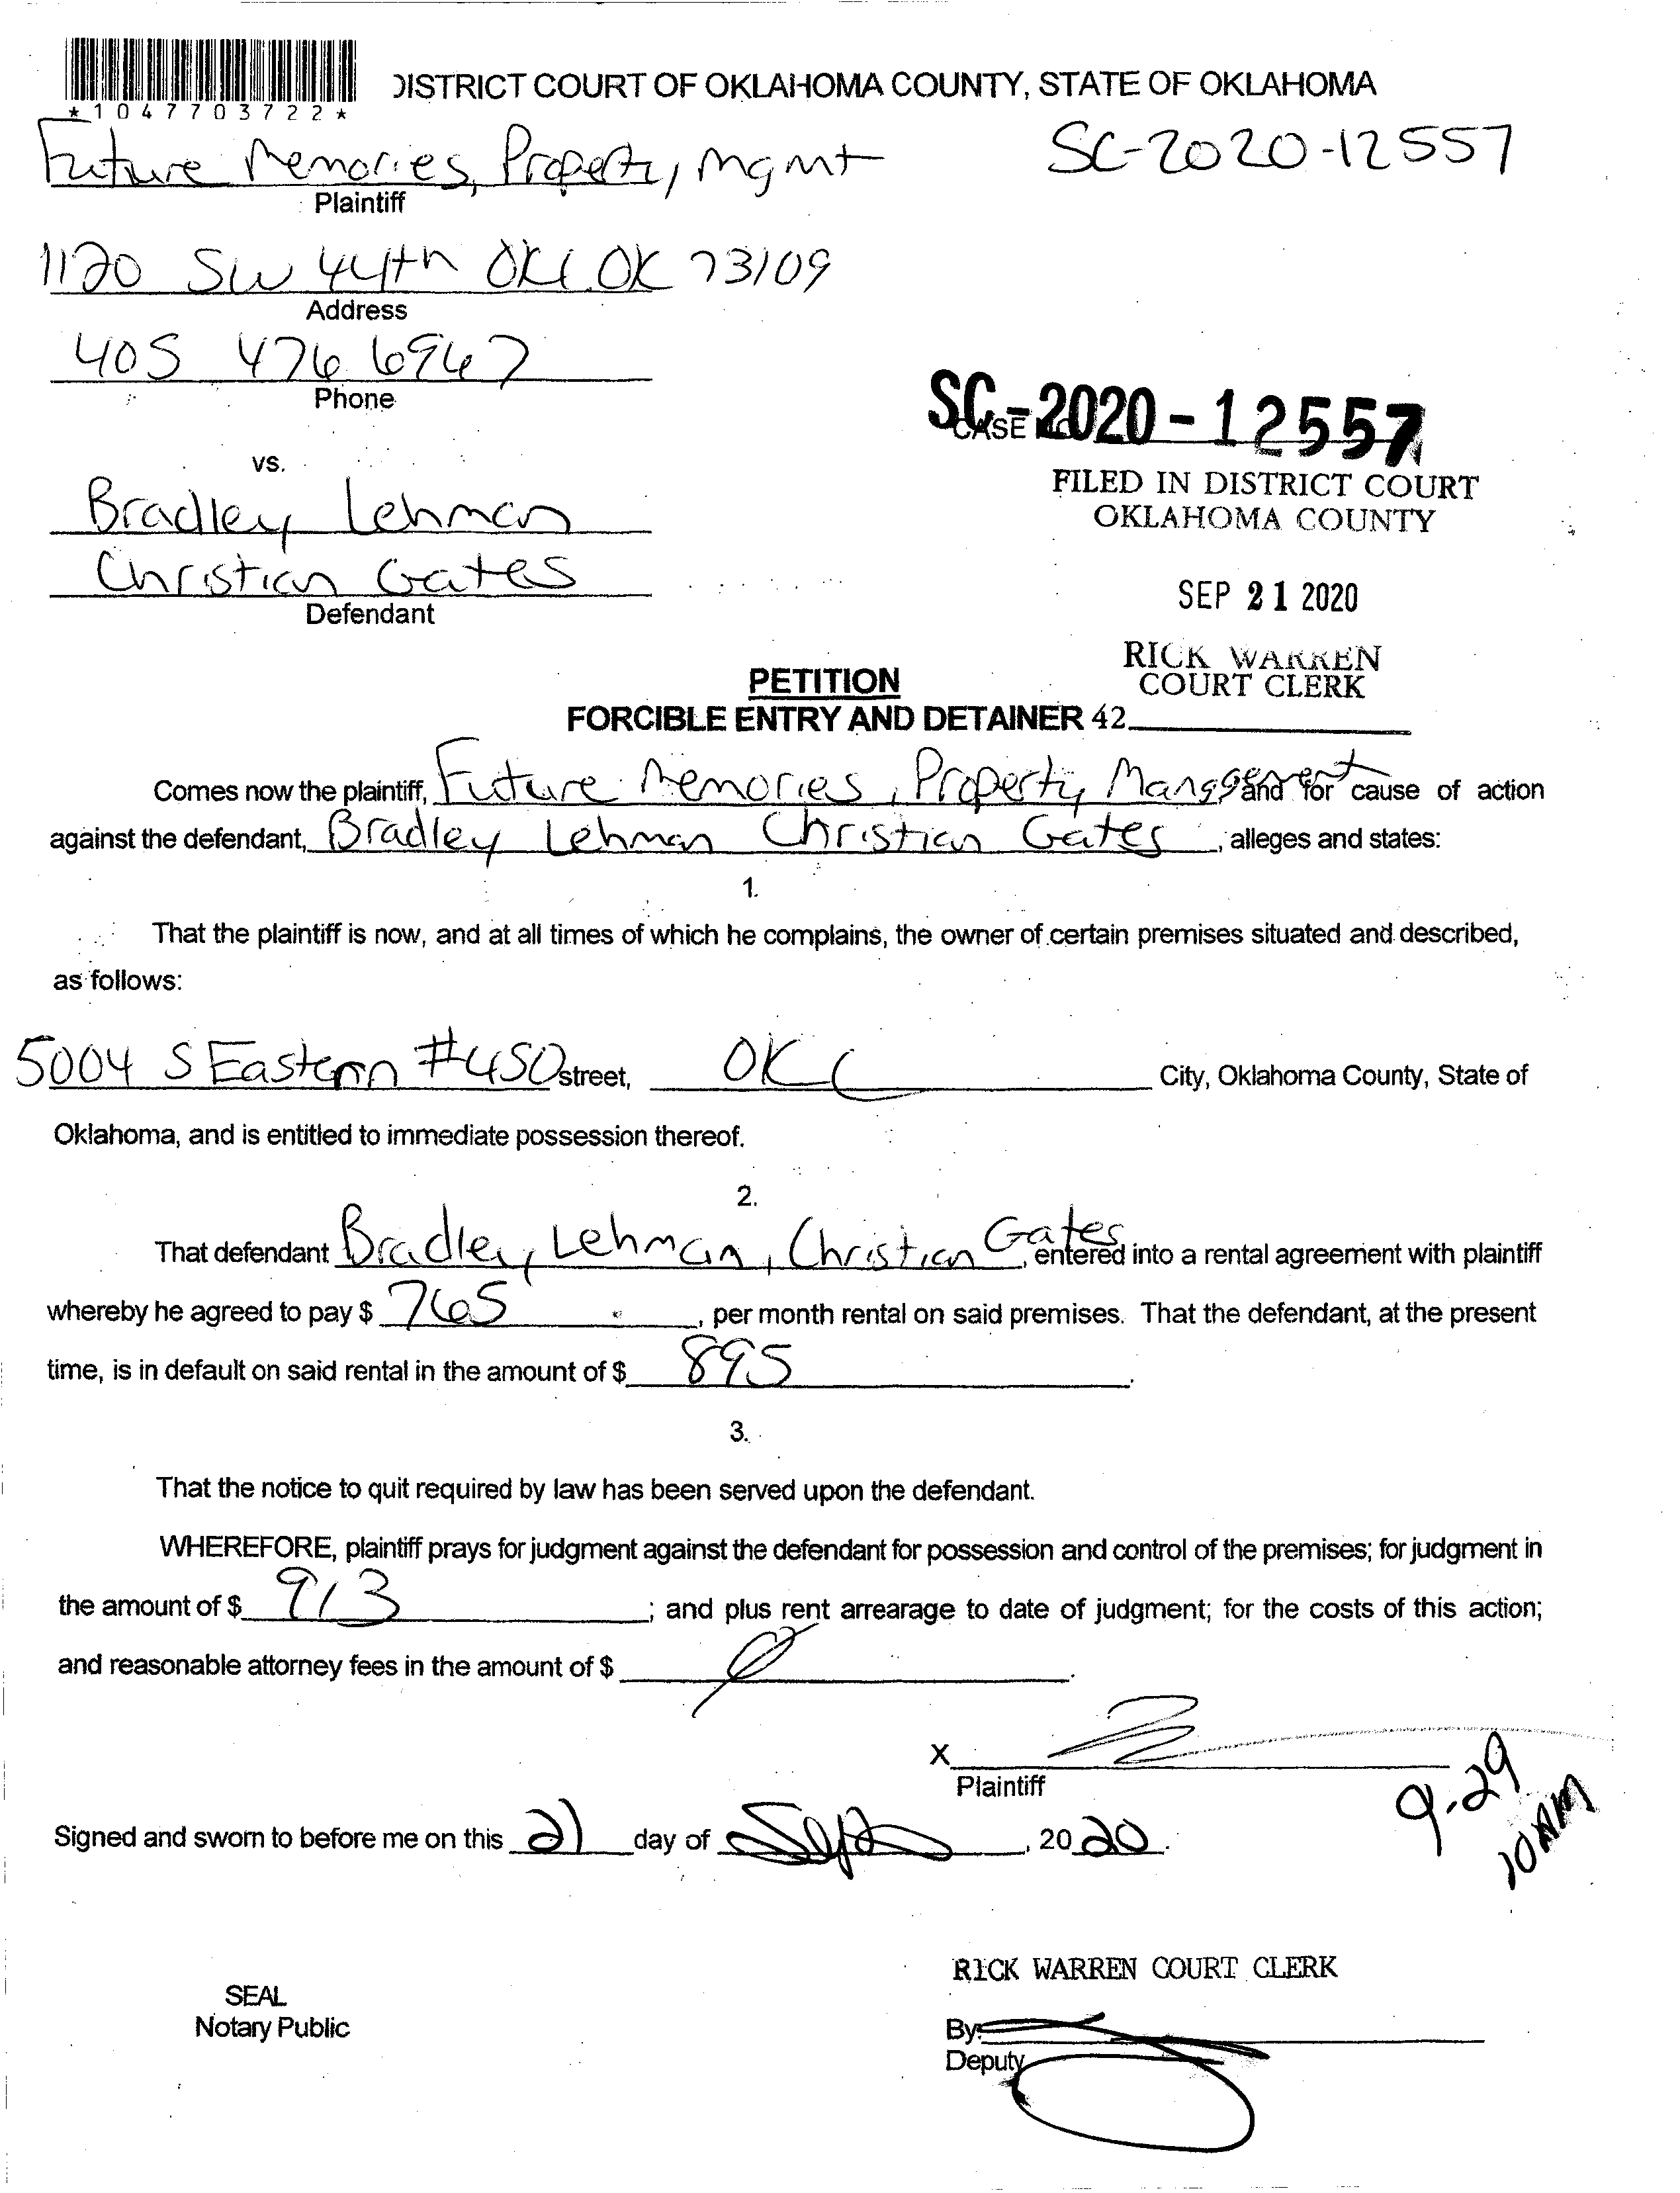 *1047703722*
DISTRICT COURT OF OKLAHOMA COUNTY, STATE OF OKLAHOMA
Future Memories, Property Mgmt
SC-2020-12557
Plaintiff
1120 SW 44th OKC OK 73109
Address
405 476 6967
Phone
SC-2020-12557
CASE NO
vs.
FILED IN DISTRICT COURT
OKLAHOMA COUNTY
Bradley Lehman
Christian Gates
Defendant
SEP 21 2020
RICK WARREN
COURT CLERK
PETITION
FORCIBLE ENTRY AND DETAINER 42
Comes now the plaintiff, Future Memories, Property Management and for cause of action
against the defendant, Bradley Lehman Christian Gates, alleges and states:
1.
That the plaintiff is now, and at all times of which he complains, the owner of certain premises situated and described,
as follows:
5004 S Eastern #450 street, OKC City, Oklahoma County, State of
Oklahoma, and is entitled to immediate possession thereof.
2.
That defendant Bradley Lehman, Christian Gates, entered into a rental agreement with plaintiff
whereby he agreed to pay $ 765, per month rental on said premises. That the defendant, at the present
time, is in default on said rental in the amount of $ 895.
3.
That the notice to quit required by law has been served upon the defendant.
WHEREFORE, plaintiff prays for judgment against the defendant for possession and control of the premises; for judgment in
the amount of $ 913; and plus rent arrearage to date of judgment; for the costs of this action;
and reasonable attorney fees in the amount of $ 0.
X
Plaintiff
9.29
10 AM
Signed and sworn to before me on this 21 day of Sept, 2020.
RICK WARREN COURT CLERK
SEAL
Notary Public
By:
Deputy